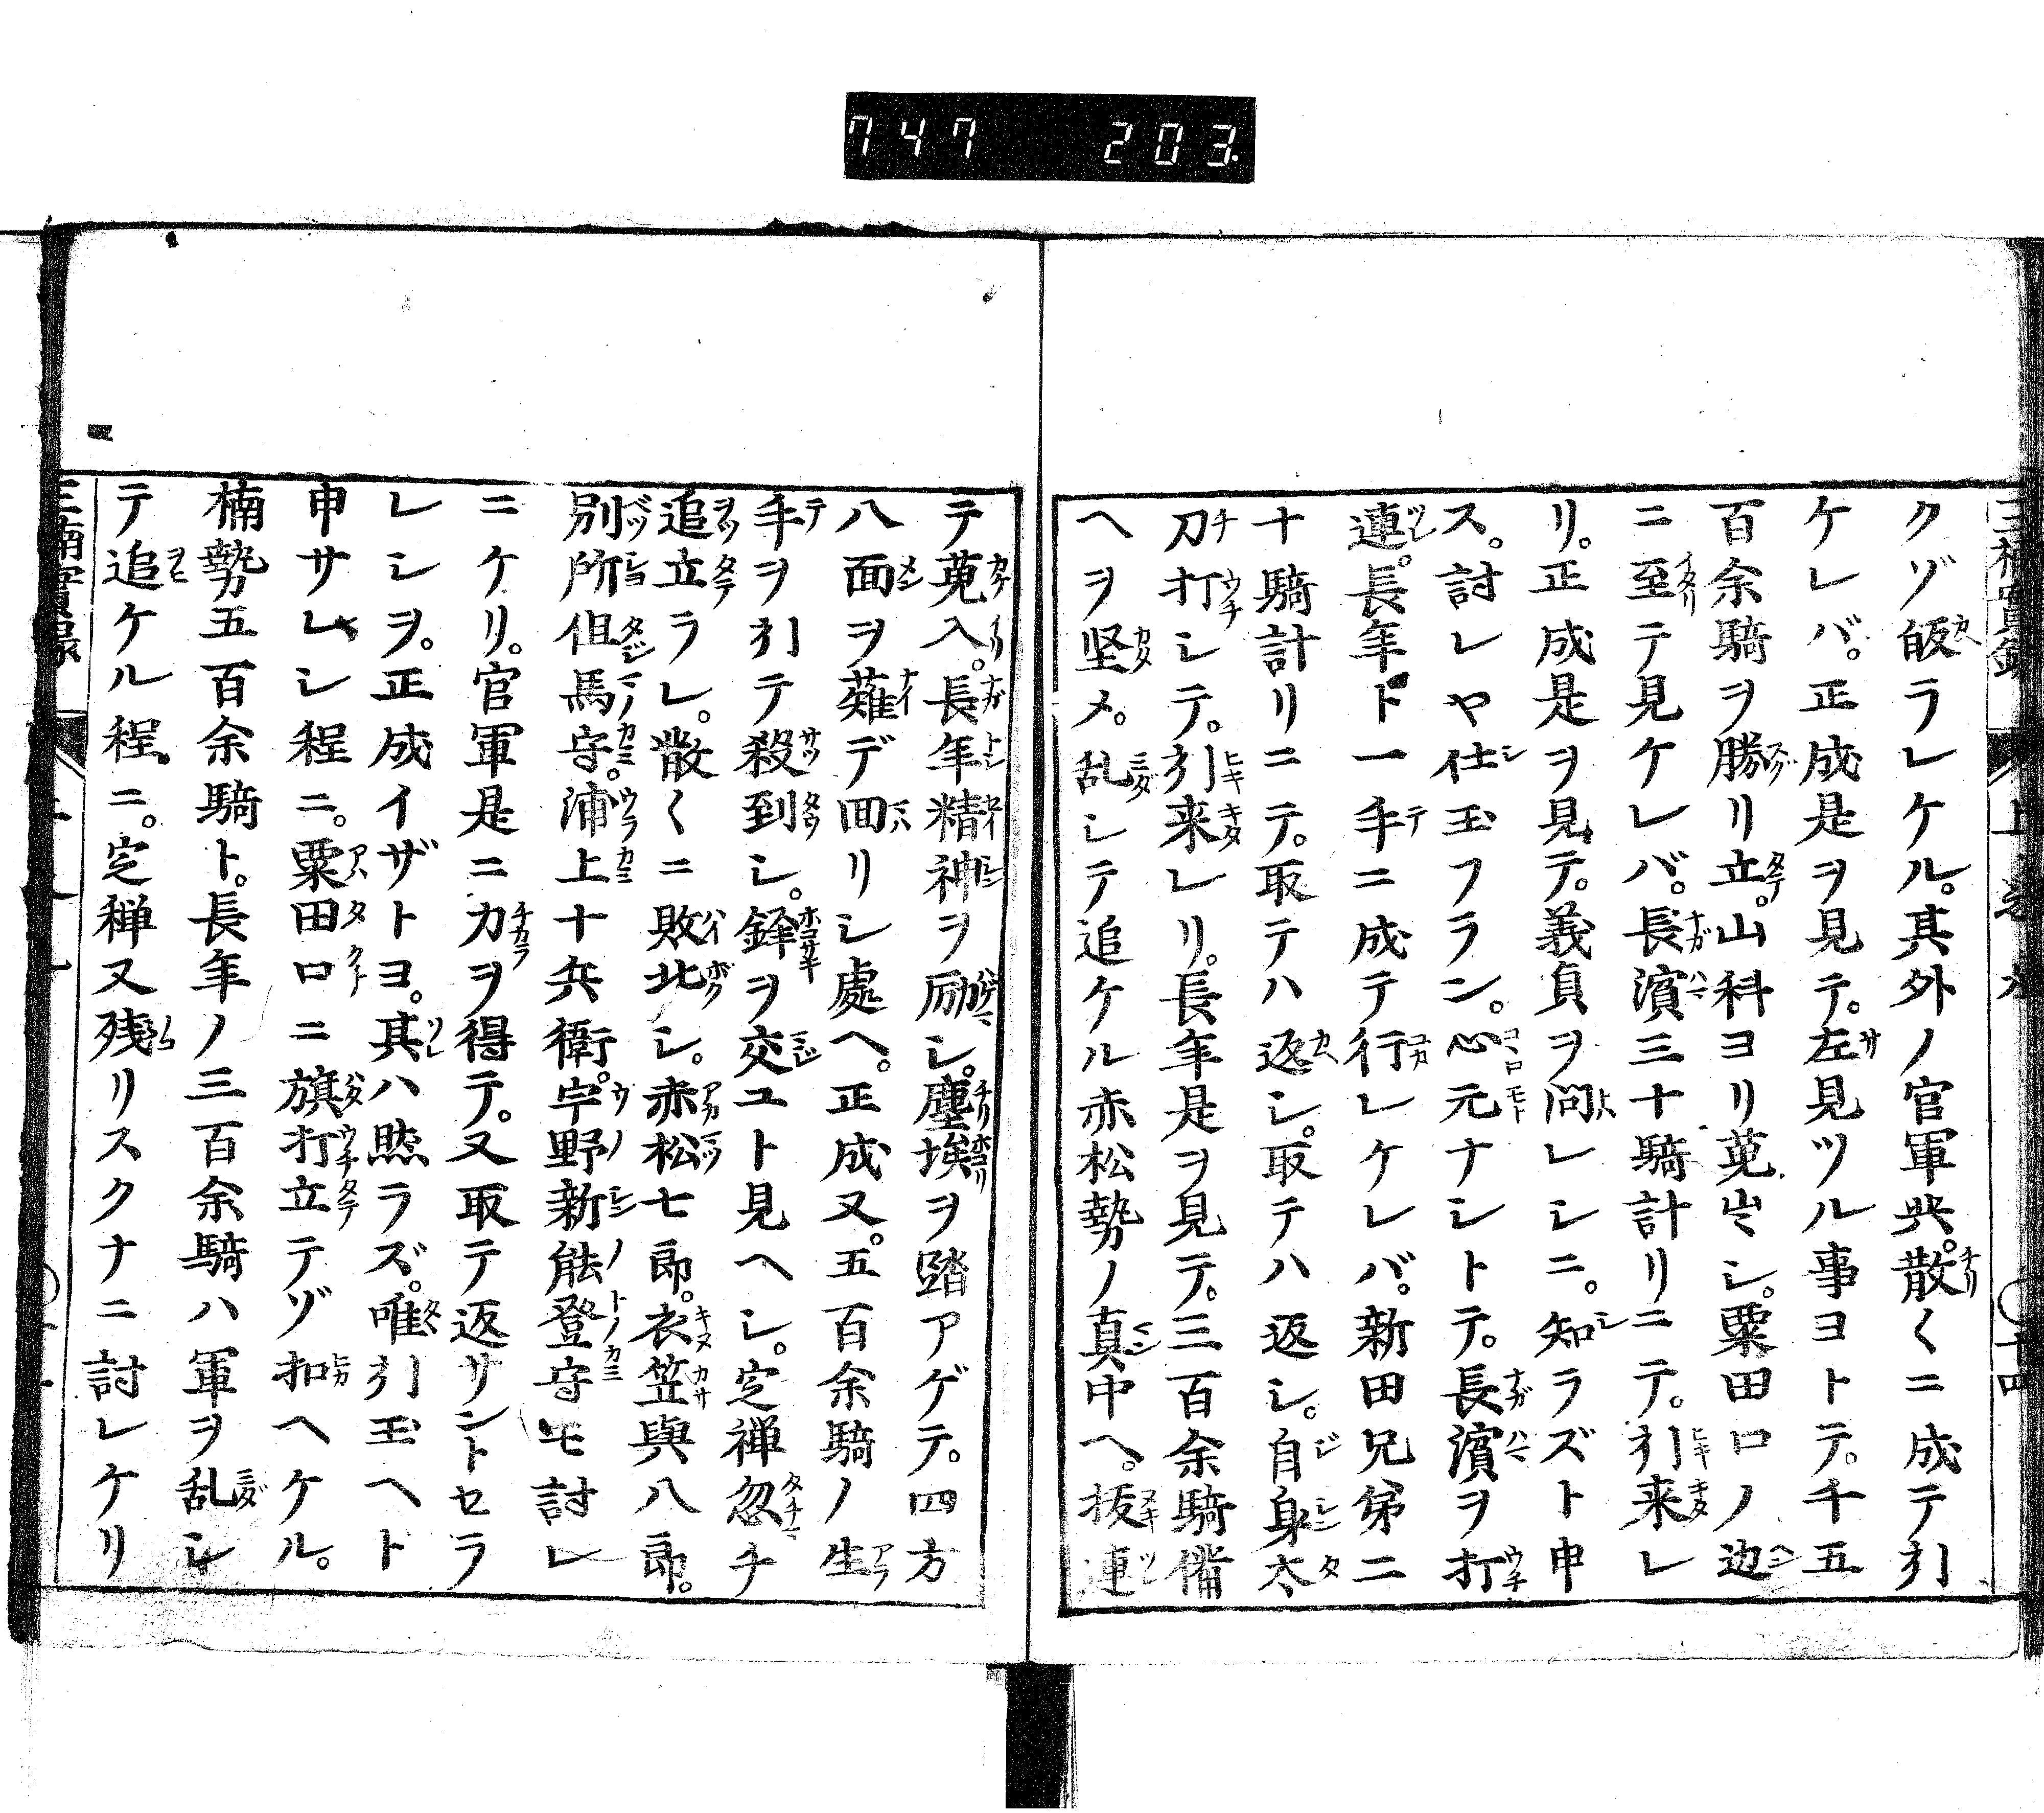 747 203.
クゾ皈ラレケル。其外ノ官軍共。散〱ニ成テ引
ケレバ。正成是ヲ見テ。左見ツル事ヨトテ。千五
百余騎ヲ勝リ立。山科ヨリ蒐出シ。粟田口ノ辺
ニ至テ見ケレバ。長濱三十騎計リニテ。引来レ
リ。正成是ヲ見テ。義貞ヲ問レシニ。知ラズト申
ス。討レヤ仕玉フラン。心元ナシトテ。長濱ヲ打
連。長年ト一手ニ成テ行レケレバ。新田兄弟二
十騎計リニテ。取テハ返シ。取テハ返シ。自身太
刀打シテ。引来レリ。長年是ヲ見テ。三百余騎備
ヘヲ堅メ。乱シテ追ケル赤松勢ノ真中ヘ。抜連
テ蒐入。長年精神ヲ励シ。塵埃ヲ踏アゲテ。四方
八面ヲ薙デ回リシ處ヘ。正成又。五百余騎ノ生
手ヲ引テ殺到シ。鋒ヲ交ユト見ヘシ。定禅忽チ
追立ラレ。散〱ニ敗北シ。赤松七郎。衣笠與八郎。
別所但馬守。浦上十兵衛。宇野新能登守モ討レ
ニケリ。官軍是ニ力ヲ得テ。又取テ返サントセラ
レシヲ。正成イザトヨ。其ハ然ラズ。唯引玉ヘト
申サレシ程ニ。粟田口ニ旗打立テゾ扣ヘケル。
楠勢五百余騎ト。長年ノ三百余騎ハ軍ヲ乱シ
テ追ケル程ニ。定禅又残リスクナニ討レケリ